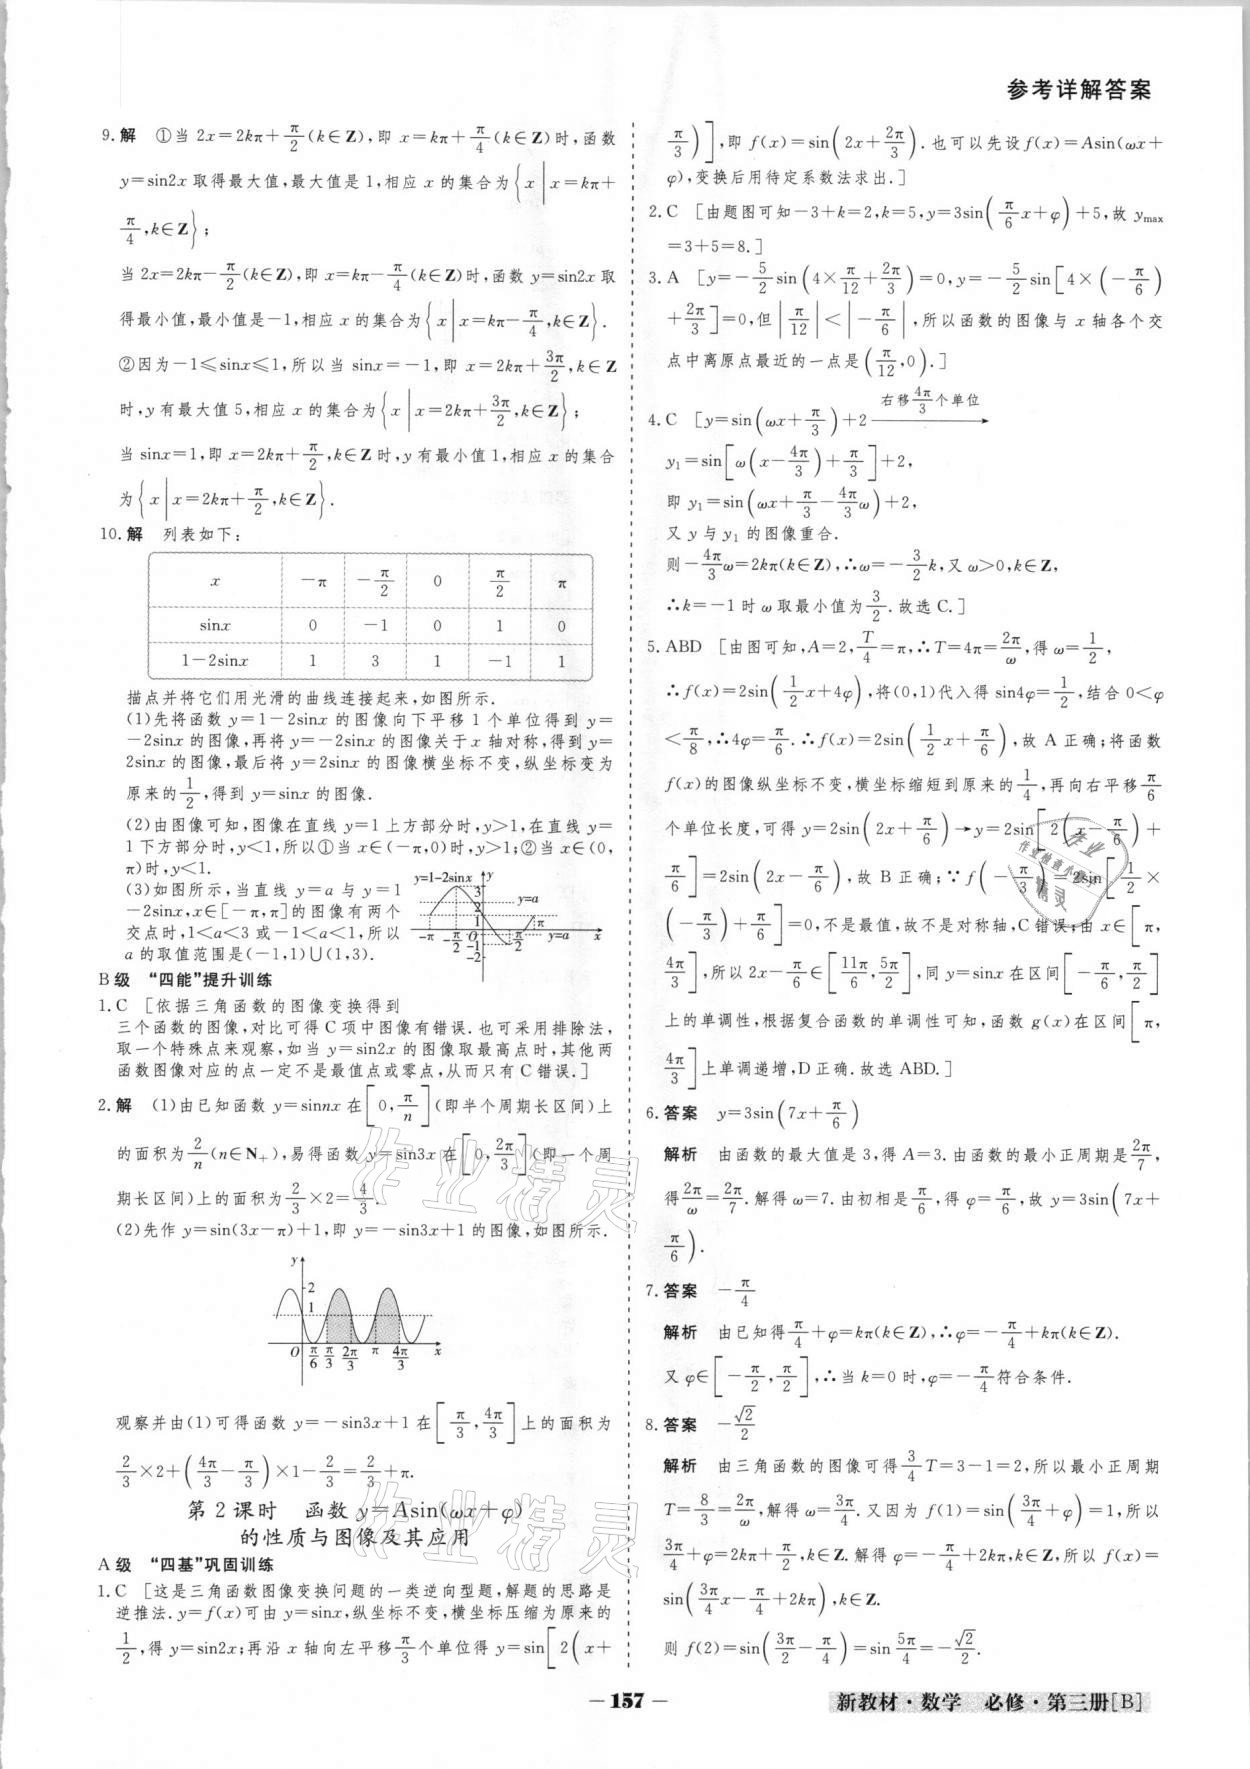 参考详解答案
9.解 ①当 2x=2kπ+π/2(k∈Z),即 x=kπ+π/4(k∈Z)时,函数
y=sin2x 取得最大值,最大值是 1,相应 x 的集合为{x|x=kπ+
π/4,k∈Z};
当 2x=2kπ-π/2(k∈Z),即 x=kπ-π/4(k∈Z)时,函数 y=sin2x 取
得最小值,最小值是-1,相应 x 的集合为{x|x=kπ-π/4,k∈Z}.
②因为-1≤sinx≤1,所以当 sinx=-1,即 x=2kπ+3π/2,k∈Z
时,y 有最大值 5,相应 x 的集合为{x|x=2kπ+3π/2,k∈Z};
当 sinx=1,即 x=2kπ+π/2,k∈Z时,y 有最小值 1,相应 x 的集合
为{x|x=2kπ+π/2,k∈Z}.
10.解 列表如下:
x -π -π/2 0 π/2 π
sinx 0 -1 0 1 0
1-2sinx 1 3 1 -1 1
描点并将它们用光滑的曲线连接起来,如图所示.
(1)先将函数 y=1-2sinx 的图像向下平移 1 个单位得到 y=
-2sinx 的图像,再将 y=-2sinx 的图像关于 x 轴对称,得到 y=
2sinx 的图像,最后将 y=2sinx 的图像横坐标不变,纵坐标变为
原来的1/2,得到 y=sinx 的图像.
(2)由图像可知,图像在直线 y=1 上方部分时,y>1,在直线 y=
1 下方部分时,y<1,所以①当 x∈(-π,0)时,y>1;②当 x∈(0,
π)时,y<1.
(3)如图所示,当直线 y=a 与 y=1
-2sinx,x∈[-π,π]的图像有两个
交点时,1<a<3 或-1<a<1,所以
a 的取值范围是(-1,1)∪(1,3).
y=1-2sinx y
3
2
1
y=a
-π -π/2 O π/2 π y=a x
-1
-2
B级 “四能”提升训练
1.C [依据三角函数的图像变换得到
三个函数的图像,对比可得 C 项中图像有错误.也可采用排除法,
取一个特殊点来观察,如当 y=sin2x 的图像取最高点时,其他两
函数图像对应的点一定不是最值点或零点,从而只有 C 错误.]
2.解 (1)由已知函数 y=sinnx 在[0,π/n](即半个周期长区间)上
的面积为2/n(n∈N₊),易得函数 y=sin3x 在[0,2π/3](即一个周
期长区间)上的面积为2/3×2=4/3.
(2)先作 y=sin(3x-π)+1,即 y=-sin3x+1 的图像,如图所示.
y
2
1
O π/6 π/3 2π/3 π 4π/3 x
观察并由(1)可得函数 y=-sin3x+1 在[π/3,4π/3]上的面积为
2/3×2+(4π/3-π/3)×1-2/3=2/3+π.
第 2 课时 函数 y=Asin(ωx+φ)
的性质与图像及其应用
A级 “四基”巩固训练
1.C [这是三角函数图像变换问题的一类逆向型题,解题的思路是
逆推法.y=f(x)可由 y=sinx,纵坐标不变,横坐标压缩为原来的
1/2,得 y=sin2x;再沿 x 轴向左平移π/3个单位得 y=sin[2(x+
π/3)],即 f(x)=sin(2x+2π/3).也可以先设 f(x)=Asin(ωx+
φ),变换后用待定系数法求出.]
2.C [由题图可知-3+k=2,k=5,y=3sin(π/6x+φ)+5,故 ymax
=3+5=8.]
3.A [y=-5/2sin(4×π/12+2π/3)=0,y=-5/2sin[4×(-π/6)
+2π/3]=0,但|π/12|<|-π/6|,所以函数的图像与 x 轴各个交
点中离原点最近的一点是(π/12,0).]
4.C [y=sin(ωx+π/3)+2 右移4π/3个单位→
y₁=sin[ω(x-4π/3)+π/3]+2,
即 y₁=sin(ωx+π/3-4π/3ω)+2,
又 y 与 y₁ 的图像重合.
则-4π/3ω=2kπ(k∈Z),∴ω=-3/2k,又 ω>0,k∈Z,
∴k=-1 时 ω 取最小值为3/2.故选 C.]
5.ABD [由图可知,A=2,T/4=π,∴T=4π=2π/ω,得 ω=1/2,
∴f(x)=2sin(1/2x+4φ),将(0,1)代入得 sin4φ=1/2,结合 0<φ
<π/8,∴4φ=π/6.∴f(x)=2sin(1/2x+π/6),故 A 正确;将函数
f(x)的图像纵坐标不变,横坐标缩短到原来的1/4,再向右平移π/6
个单位长度,可得 y=2sin(2x+π/6)→y=2sin[2(x-π/6)+
π/6]=2sin(2x-π/6),故 B 正确;∵f(-π/3)=2sin[1/2×
(-π/3)+π/6]=0,不是最值,故不是对称轴,C 错误;由 x∈[π,
4π/3],所以 2x-π/6∈[11π/6,5π/2],同 y=sinx 在区间[-π/6,π/2]
上的单调性,根据复合函数的单调性可知,函数 g(x)在区间[π,
4π/3]上单调递增,D 正确.故选 ABD.]
6.答案 y=3sin(7x+π/6)
解析 由函数的最大值是 3,得 A=3.由函数的最小正周期是2π/7,
得2π/ω=2π/7.解得 ω=7.由初相是π/6,得 φ=π/6,故 y=3sin(7x+
π/6).
7.答案 -π/4
解析 由已知得π/4+φ=kπ(k∈Z),∴φ=-π/4+kπ(k∈Z).
又 φ∈[-π/2,π/2],∴当 k=0 时,φ=-π/4符合条件.
8.答案 -√2/2
解析 由三角函数的图像可得3/4T=3-1=2,所以最小正周期
T=8/3=2π/ω,解得 ω=3π/4.又因为 f(1)=sin(3π/4+φ)=1,所以
3π/4+φ=2kπ+π/2,k∈Z.解得 φ=-π/4+2kπ,k∈Z,所以 f(x)=
sin(3π/4x-π/4+2kπ),k∈Z.
则 f(2)=sin(3π/2-π/4)=sin5π/4=-√2/2.
作业精灵
作业精灵
— 157 —
新教材·数学 必修·第三册[B]